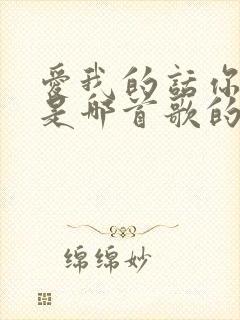 愛我的話你
是那首歌的
绵绵妙